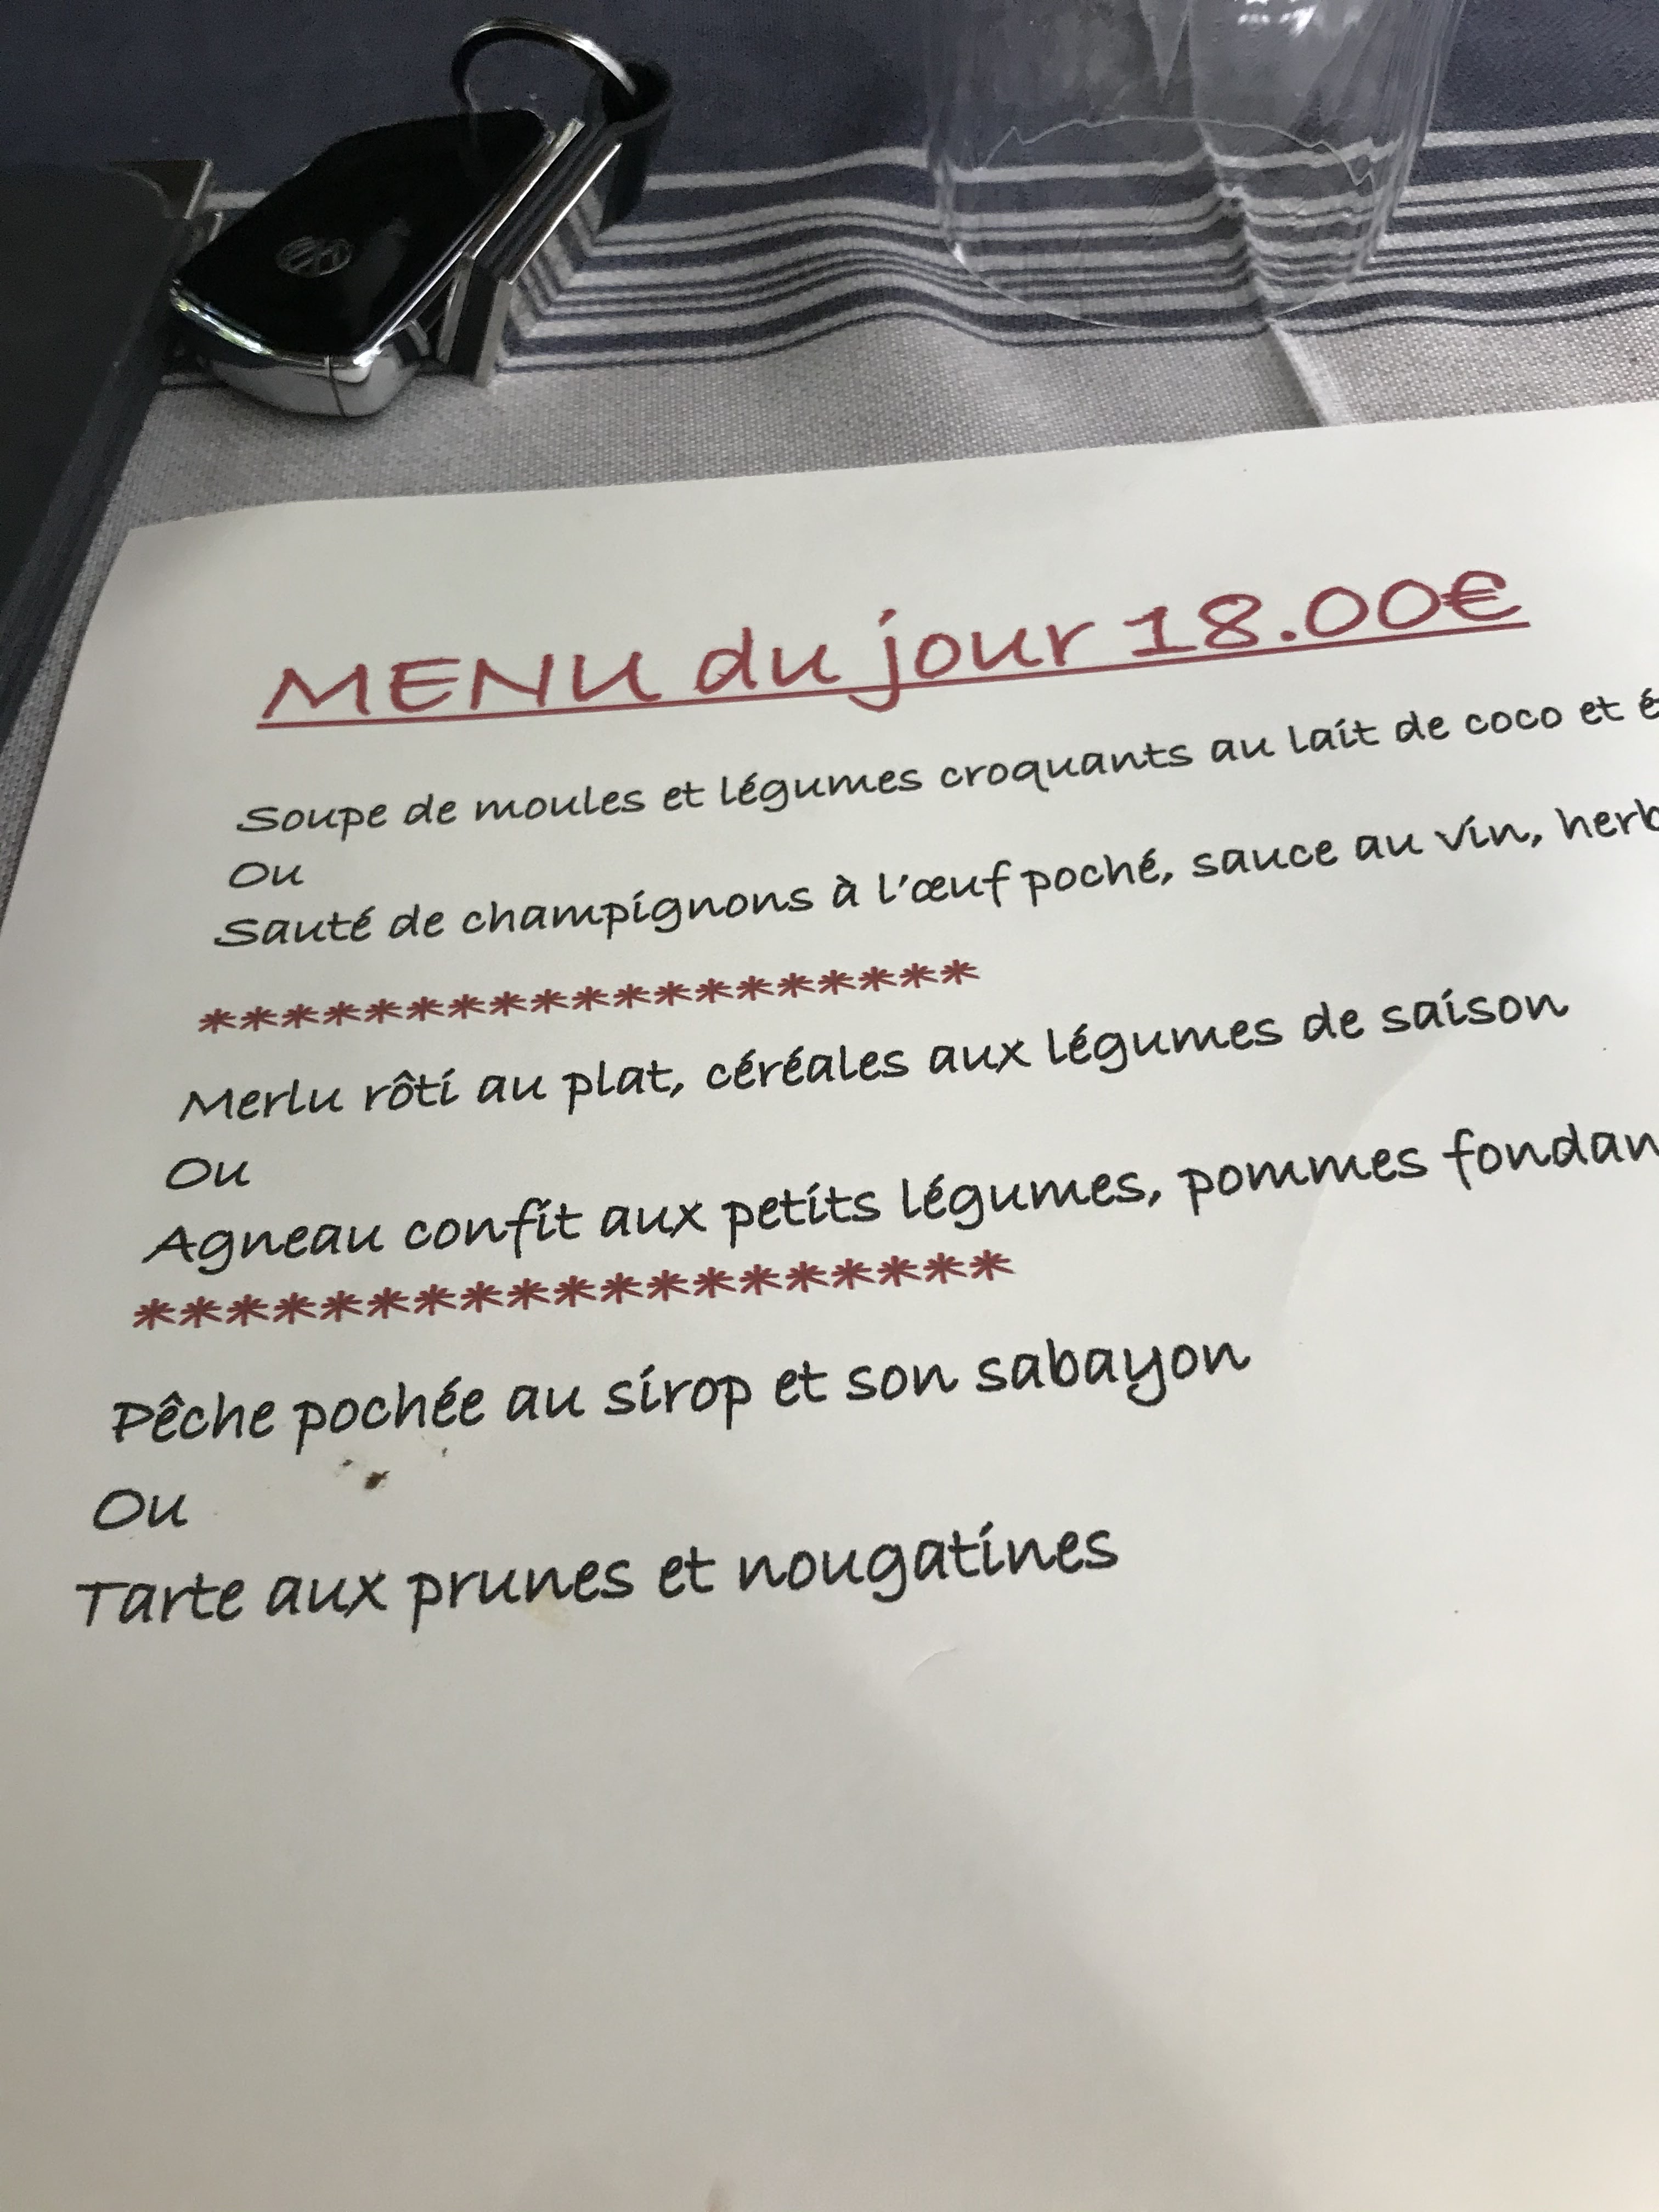 MENU du jour 18.00€
Soupe de moules et légumes croquants au lait de coco et
Ou
Sauté de champignons à l'œuf poché, sauce au vin,
*******************
Merlu rôti au plat, céréales aux légumes de saison
Ou
Agneau confit aux petits légumes, pommes
*******************
Pêche pochée au sirop et son sabayon
Ou
Tarte aux prunes et nougatines